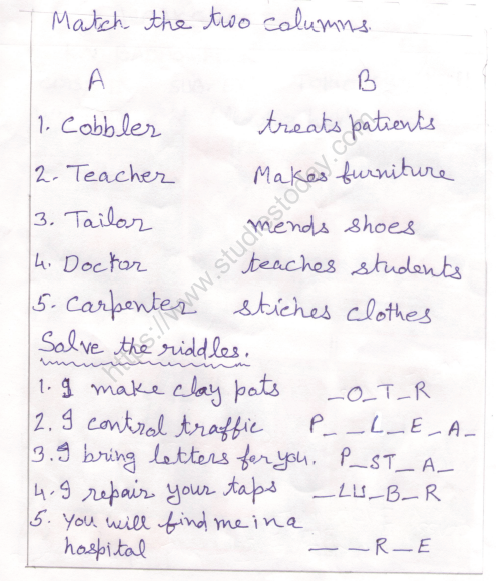 Match the two columns.
A B
1. Cobbler treats patients
2. Teacher Makes furniture
3. Tailor mends shoes
4. Doctor teaches students
5. Carpenter stiches clothes
Solve the riddles.
1. I make clay pots _O_T_R
2. I control traffic P_ _L_E_A_
3. I bring letters for you. P_ST_A_
4. I repair your taps _LU_B_R
5. You will find me in a
hospital _ _R_E
https://www.studiestoday.com